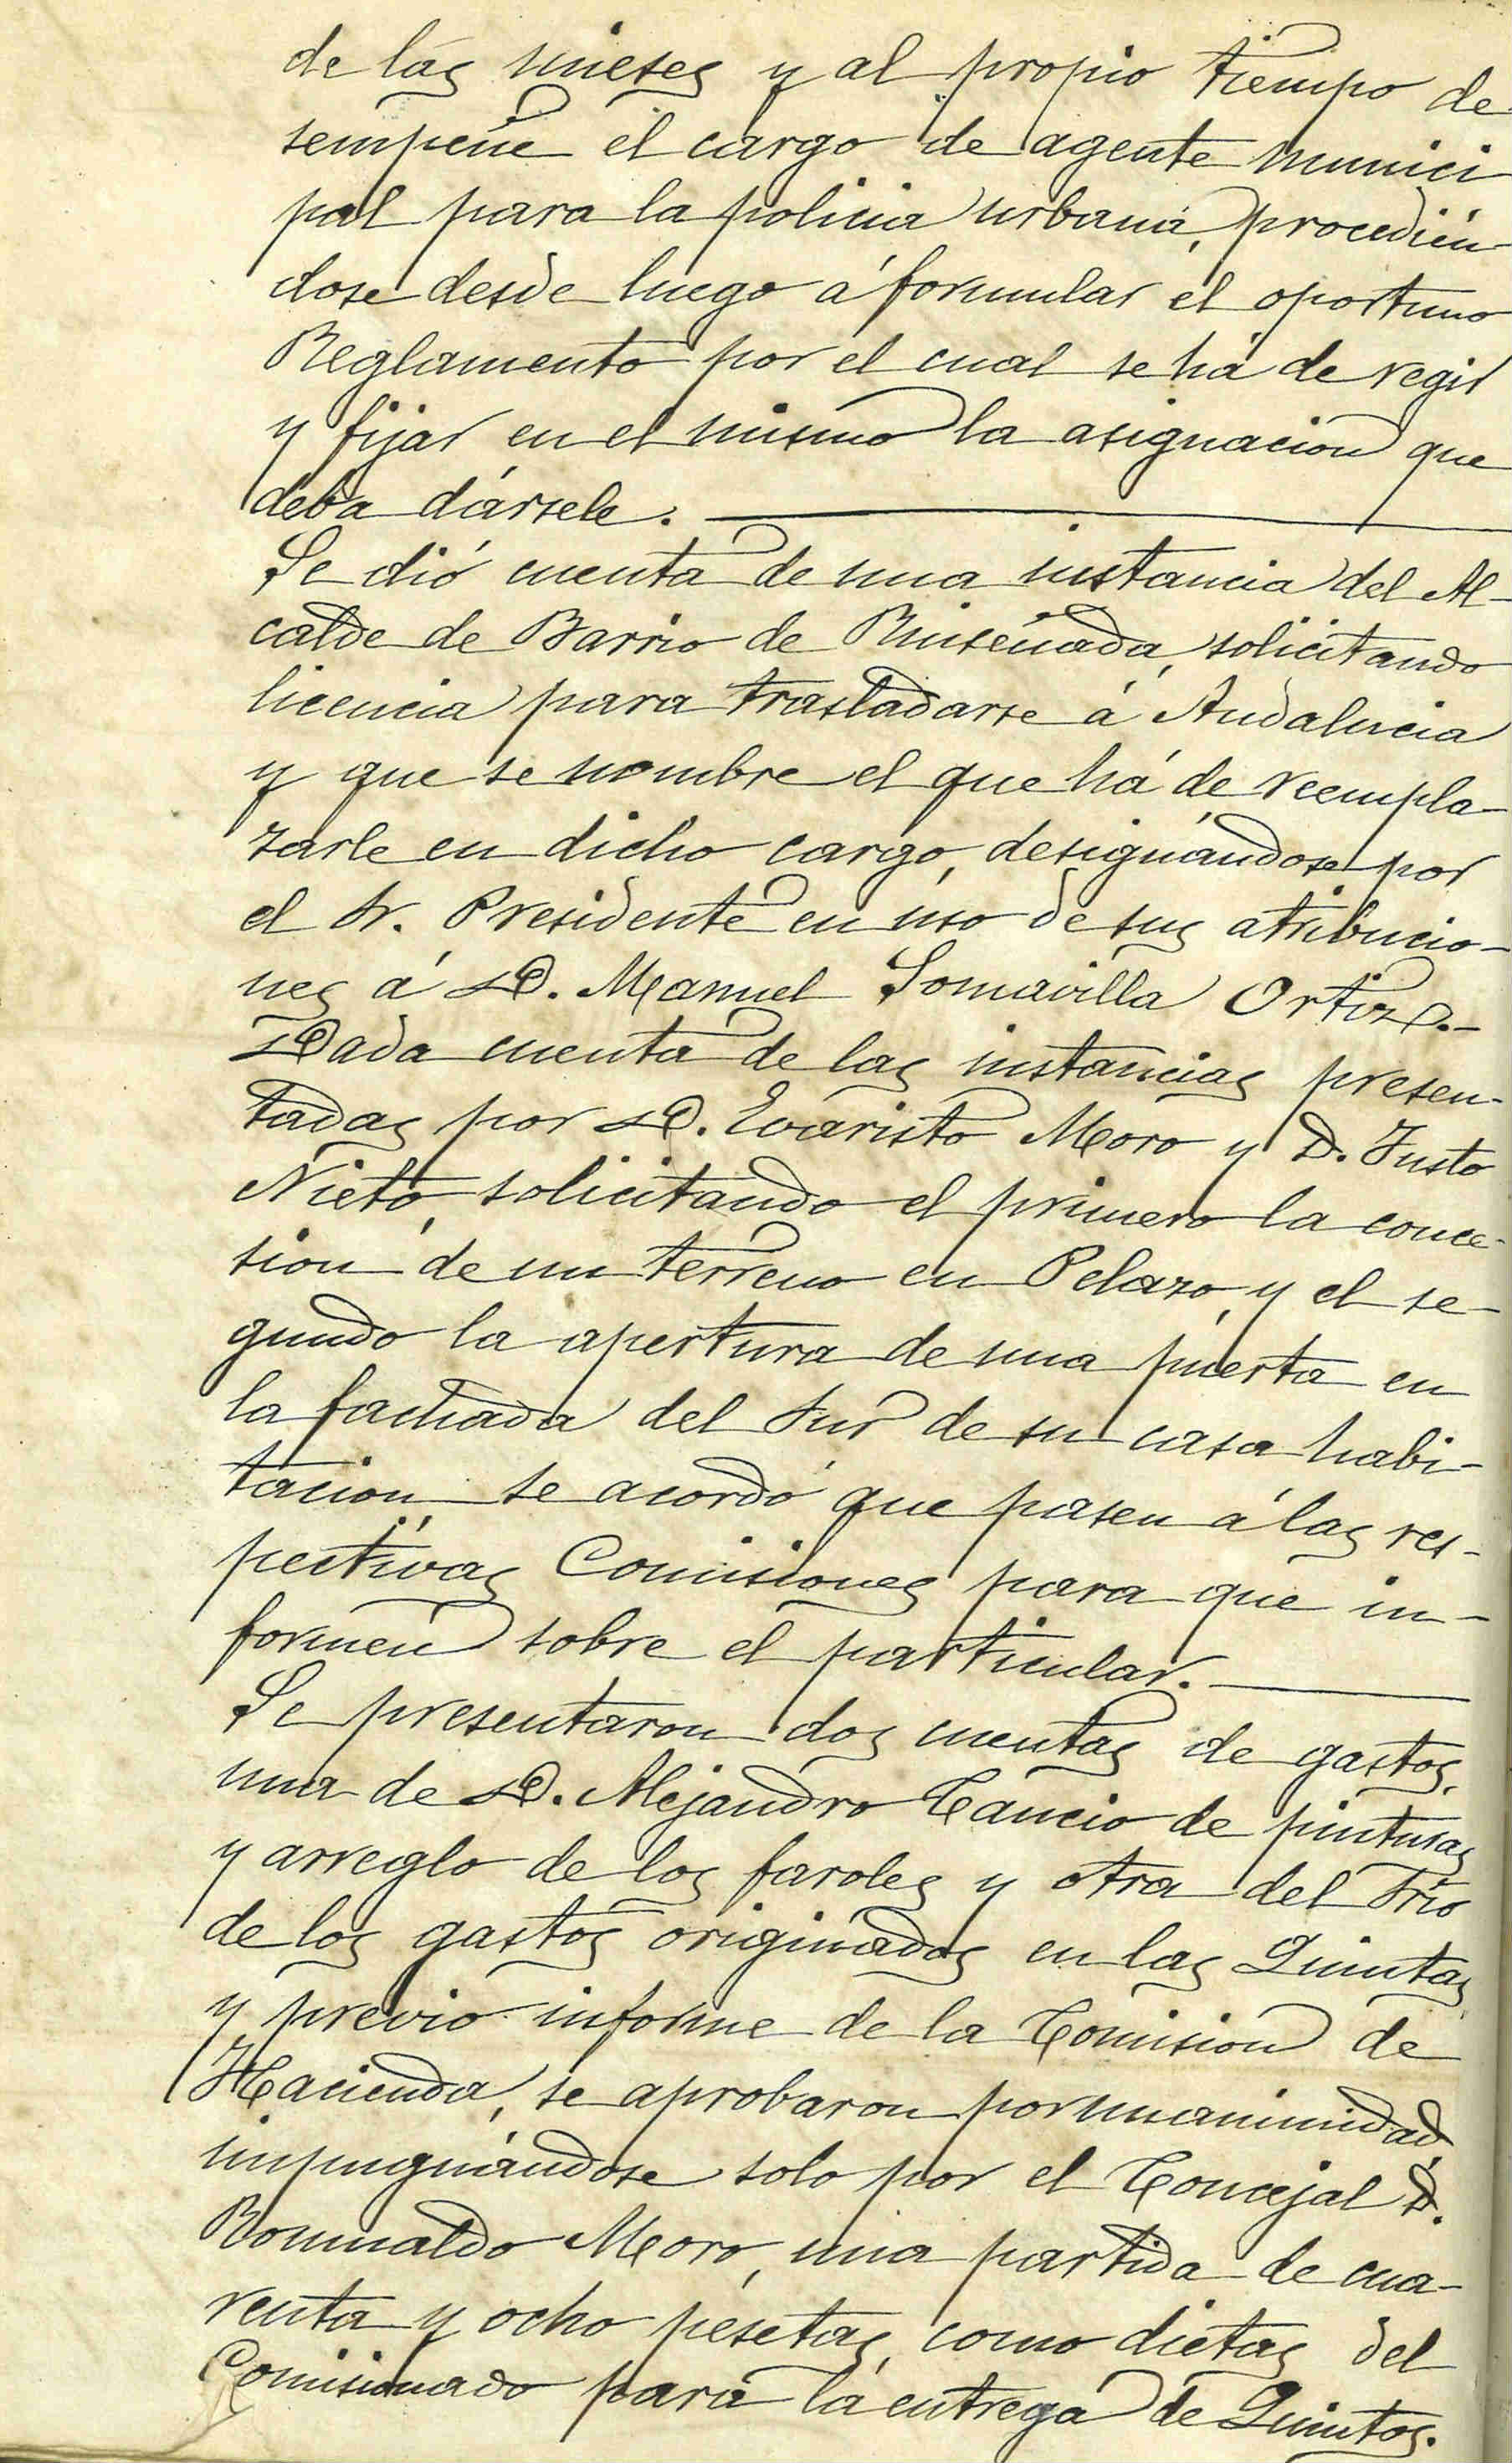 de las mieses y al propio tiempo de
sempeñe el cargo de agente munici
pal para la policia urbana, procedién-
dose desde luego á formular el oportuno
Reglamento por el cual se há de regir
y fijar en el mismo la asignacion que
deba dársele.
Se dió cuenta de una instancia del Al-
calde de Barrio de Ruiseñada, solicitando
licencia para trasladarse á Andalucia
y que se nombre el que há de reempla-
zarle en dicho cargo, designándose por
el Sr. Presidente en uso de sus atribucio-
nes á D. Manuel Somavilla Ortiz.-
Dada cuenta de las instancias presen-
tadas por D. Evaristo Moro y D. Justo
Nieto, solicitando el primero la conce-
sion de un terreno en Pelazo, y el se-
gundo la apertura de una puerta en
la fachada del Sur de su casa habi-
tacion, se acordó que pasen á las res-
pectivas Comisiones para que in-
formen sobre el particular.
Se presentaron dos cuentas de gastos,
una de D. Alejandro Cancio de pinturas
y arreglo de los faroles y otra del Srio
de los gastos originados en las Quintas
y previo informe de la Comision de
Hacienda, se aprobaron por unanimidad,
impugnándose solo por el Concejal D.
Romualdo Moro, una partida de cua-
renta y ocho pesetas, como dietas del
Comisionado para la entrega de Quintos.